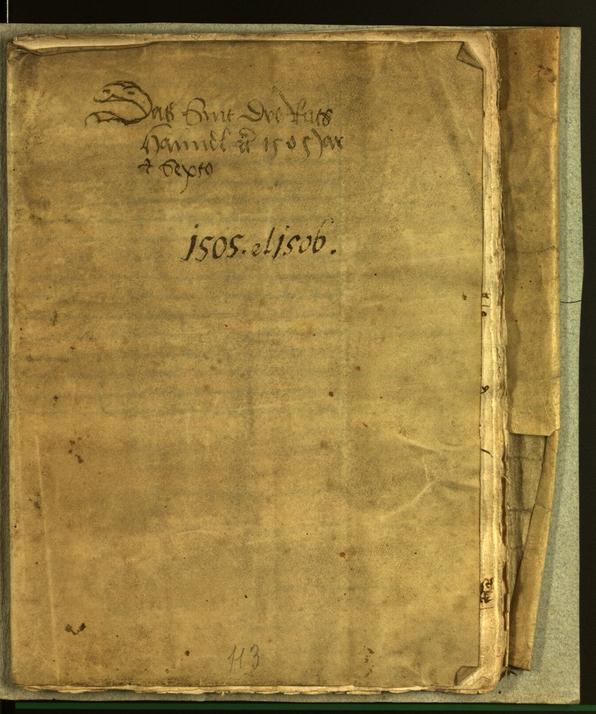 Das Sint Die Rats
Hanndl 1505 Jar
& Sexto
1505. et 1506.
113